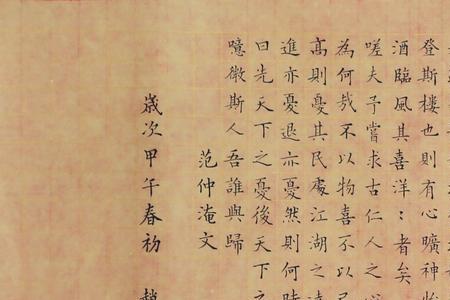 登斯樓也則有心曠神怡
酒臨風其喜洋〻者矣
嗟夫予嘗求古仁人之心
為何哉不以物喜不以己
高則憂其民處江湖之遠
進亦憂退亦憂然則何時
曰先天下之憂後天下之
噫微斯人吾誰與歸
范仲淹文
歲次甲午春初 趙